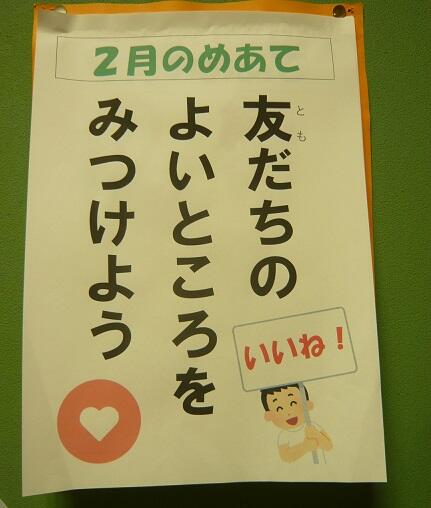 2月のめあて
友だちの
とも
よいところを
みつけよう
いいね！